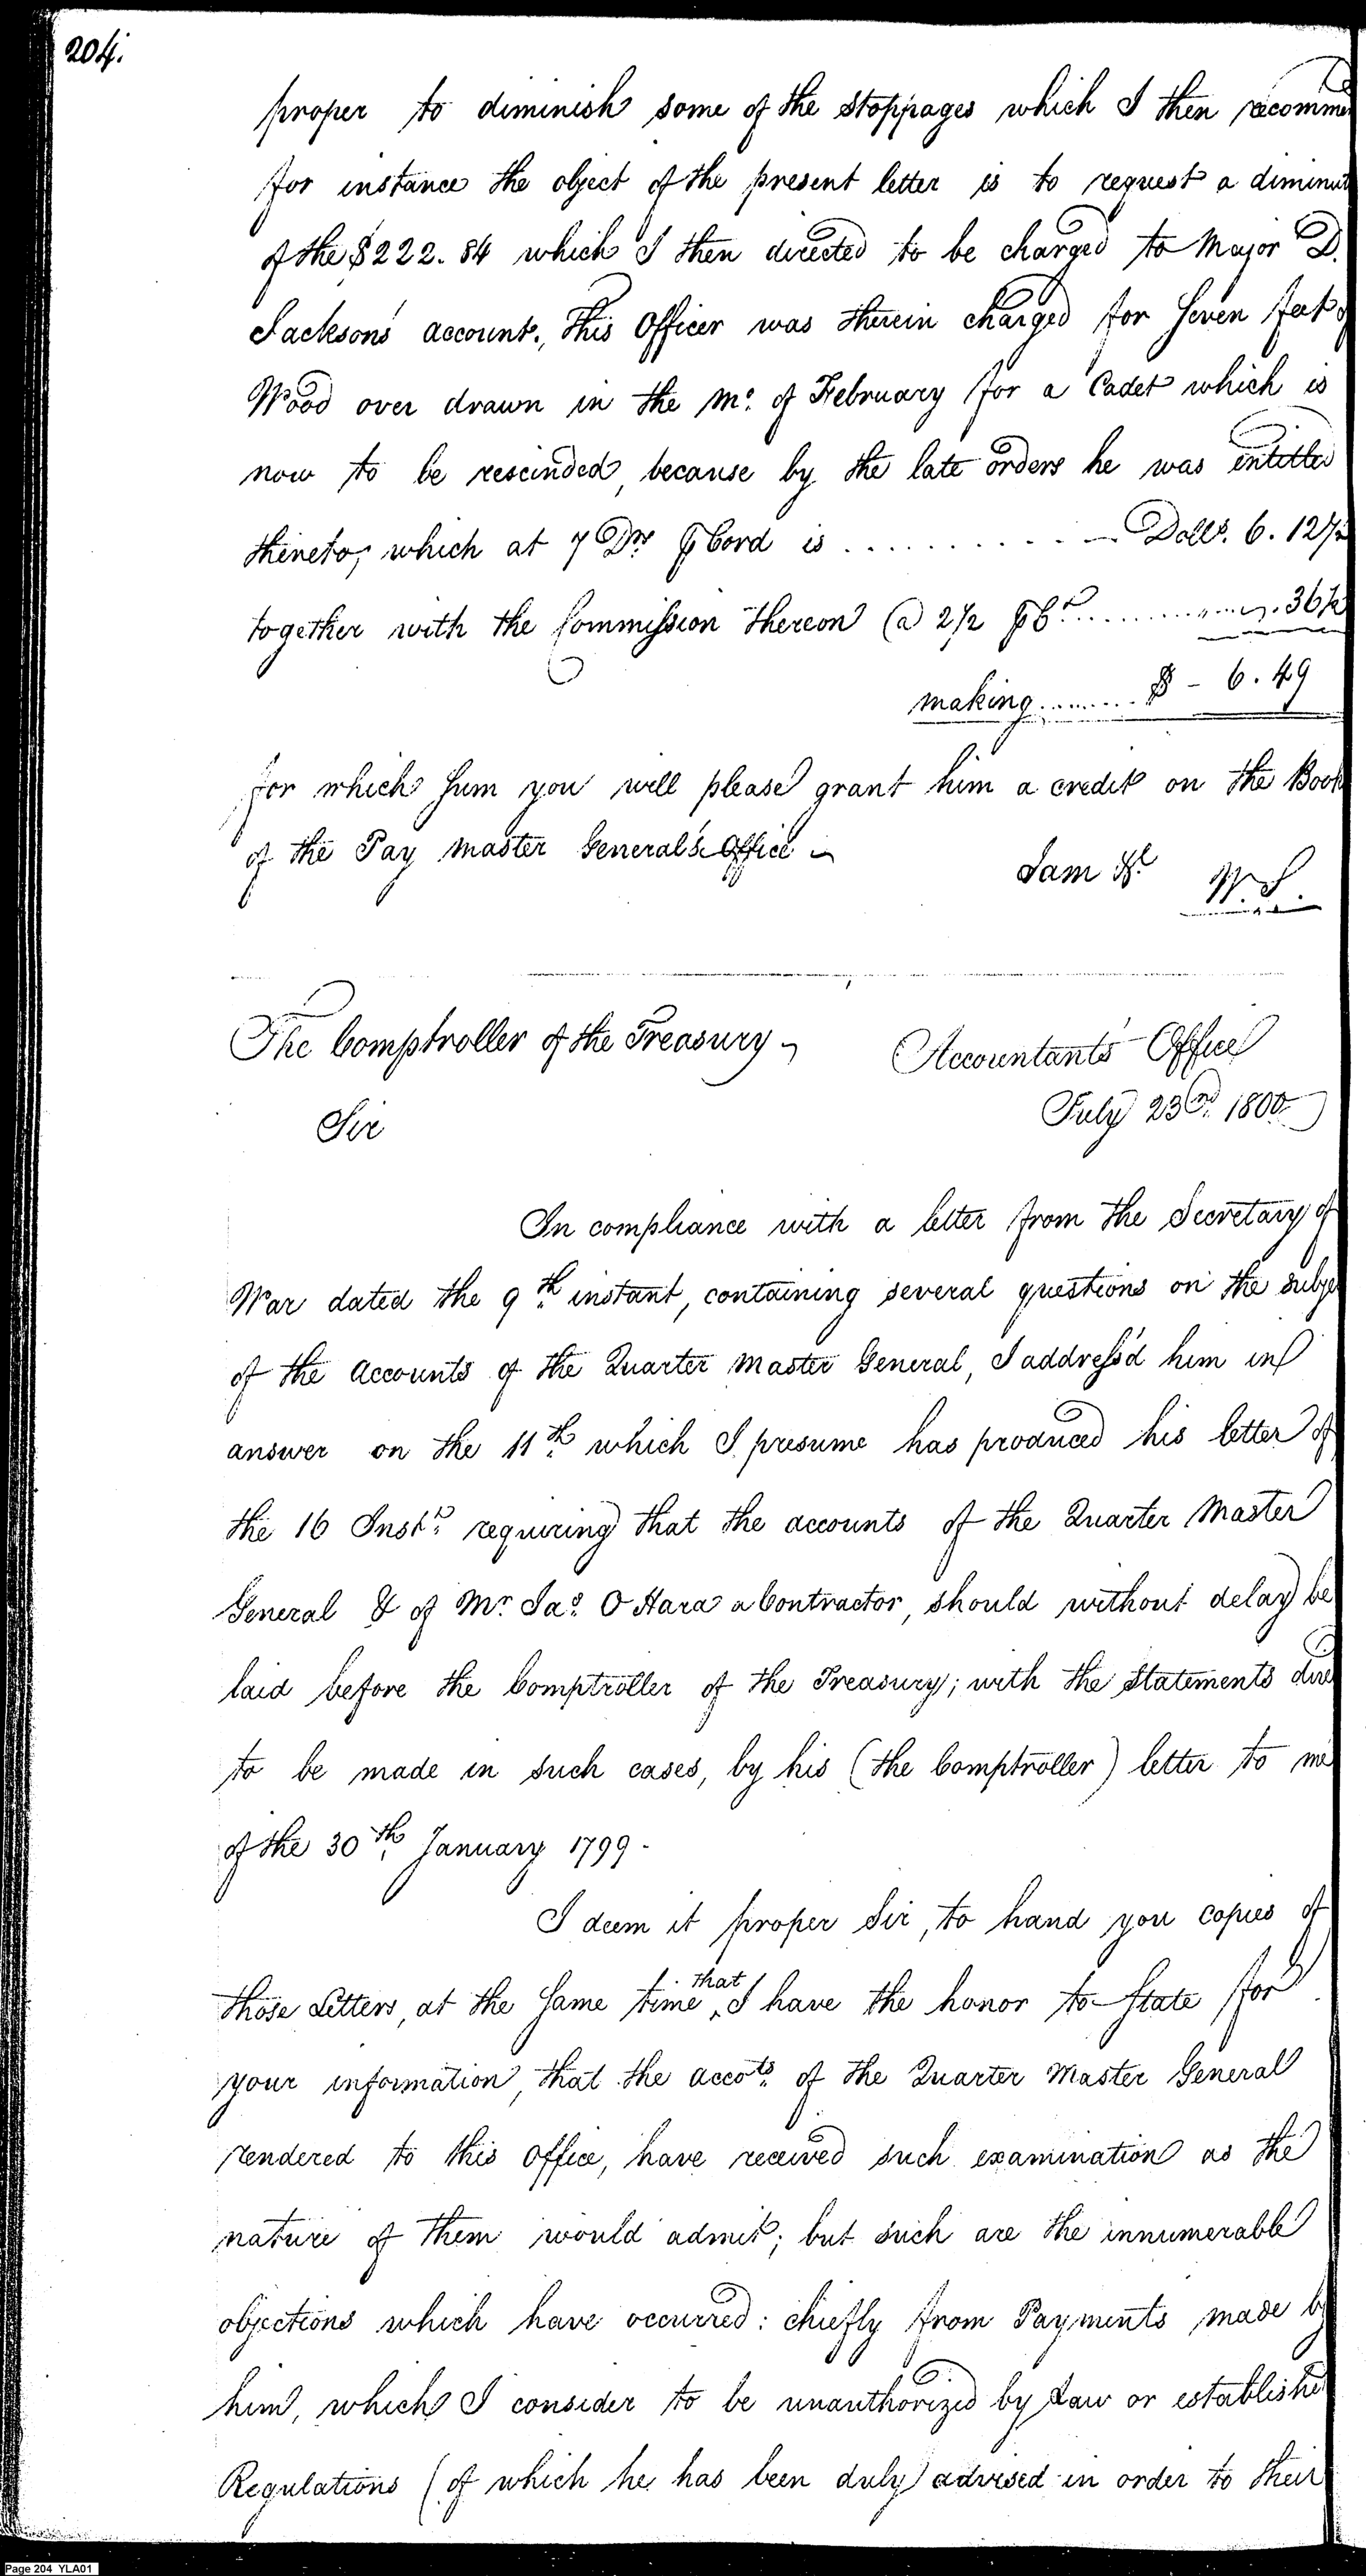 204.
proper to diminish some of the stoppages which I then recomme
for instance the object of the present letter is to request a diminut
of the $222.84 which I then directed to be charged to Major D.
Jacksons account., This Officer was therein charged for Seven feet of
Wood over drawn in the Mo. of February for a Cadet which is
now to be rescinded, because by the late orders he was entitled
thereto, which at 7 Drs ⅌ Cord is ............ Dolls. 6.12½
together with the Commission thereon @ 2½ ⅌ Ct. ............ .36½
making ........ $ - 6.49
for which Sum you will please grant him a credit on the Book
of the Pay Master General's Office
I am &c
W. S.
The Comptroller of the Treasury
Accountants Office
July 23rd. 1800
Sir
In compliance with a letter from the Secretary of
War dated the 9th. instant, containing several questions on the subje
of the accounts of the Quarter Master General, I address'd him in
answer on the 11th. which I presume has produced his letter of
the 16 Inst. requiring that the accounts of the Quarter Master
General & of Mr. Jas. O Hara a Contractor, should without delay be
laid before the Comptroller of the Treasury; with the Statements dire
to be made in such cases, by his (the Comptroller) letter to me
of the 30th. January 1799.
I deem it proper Sir, to hand you copies of
those Letters, at the same time that I have the honor to State for
your information, that the accots. of the Quarter Master General
rendered to this Office, have received such examination as the
nature of them would admit; but such are the innumerable
objections which have occurred: chiefly from Payments made by
him, which I consider to be unauthorized by Law or establishe
Regulations (of which he has been duly) advised in order to their
Page 204 YLA01